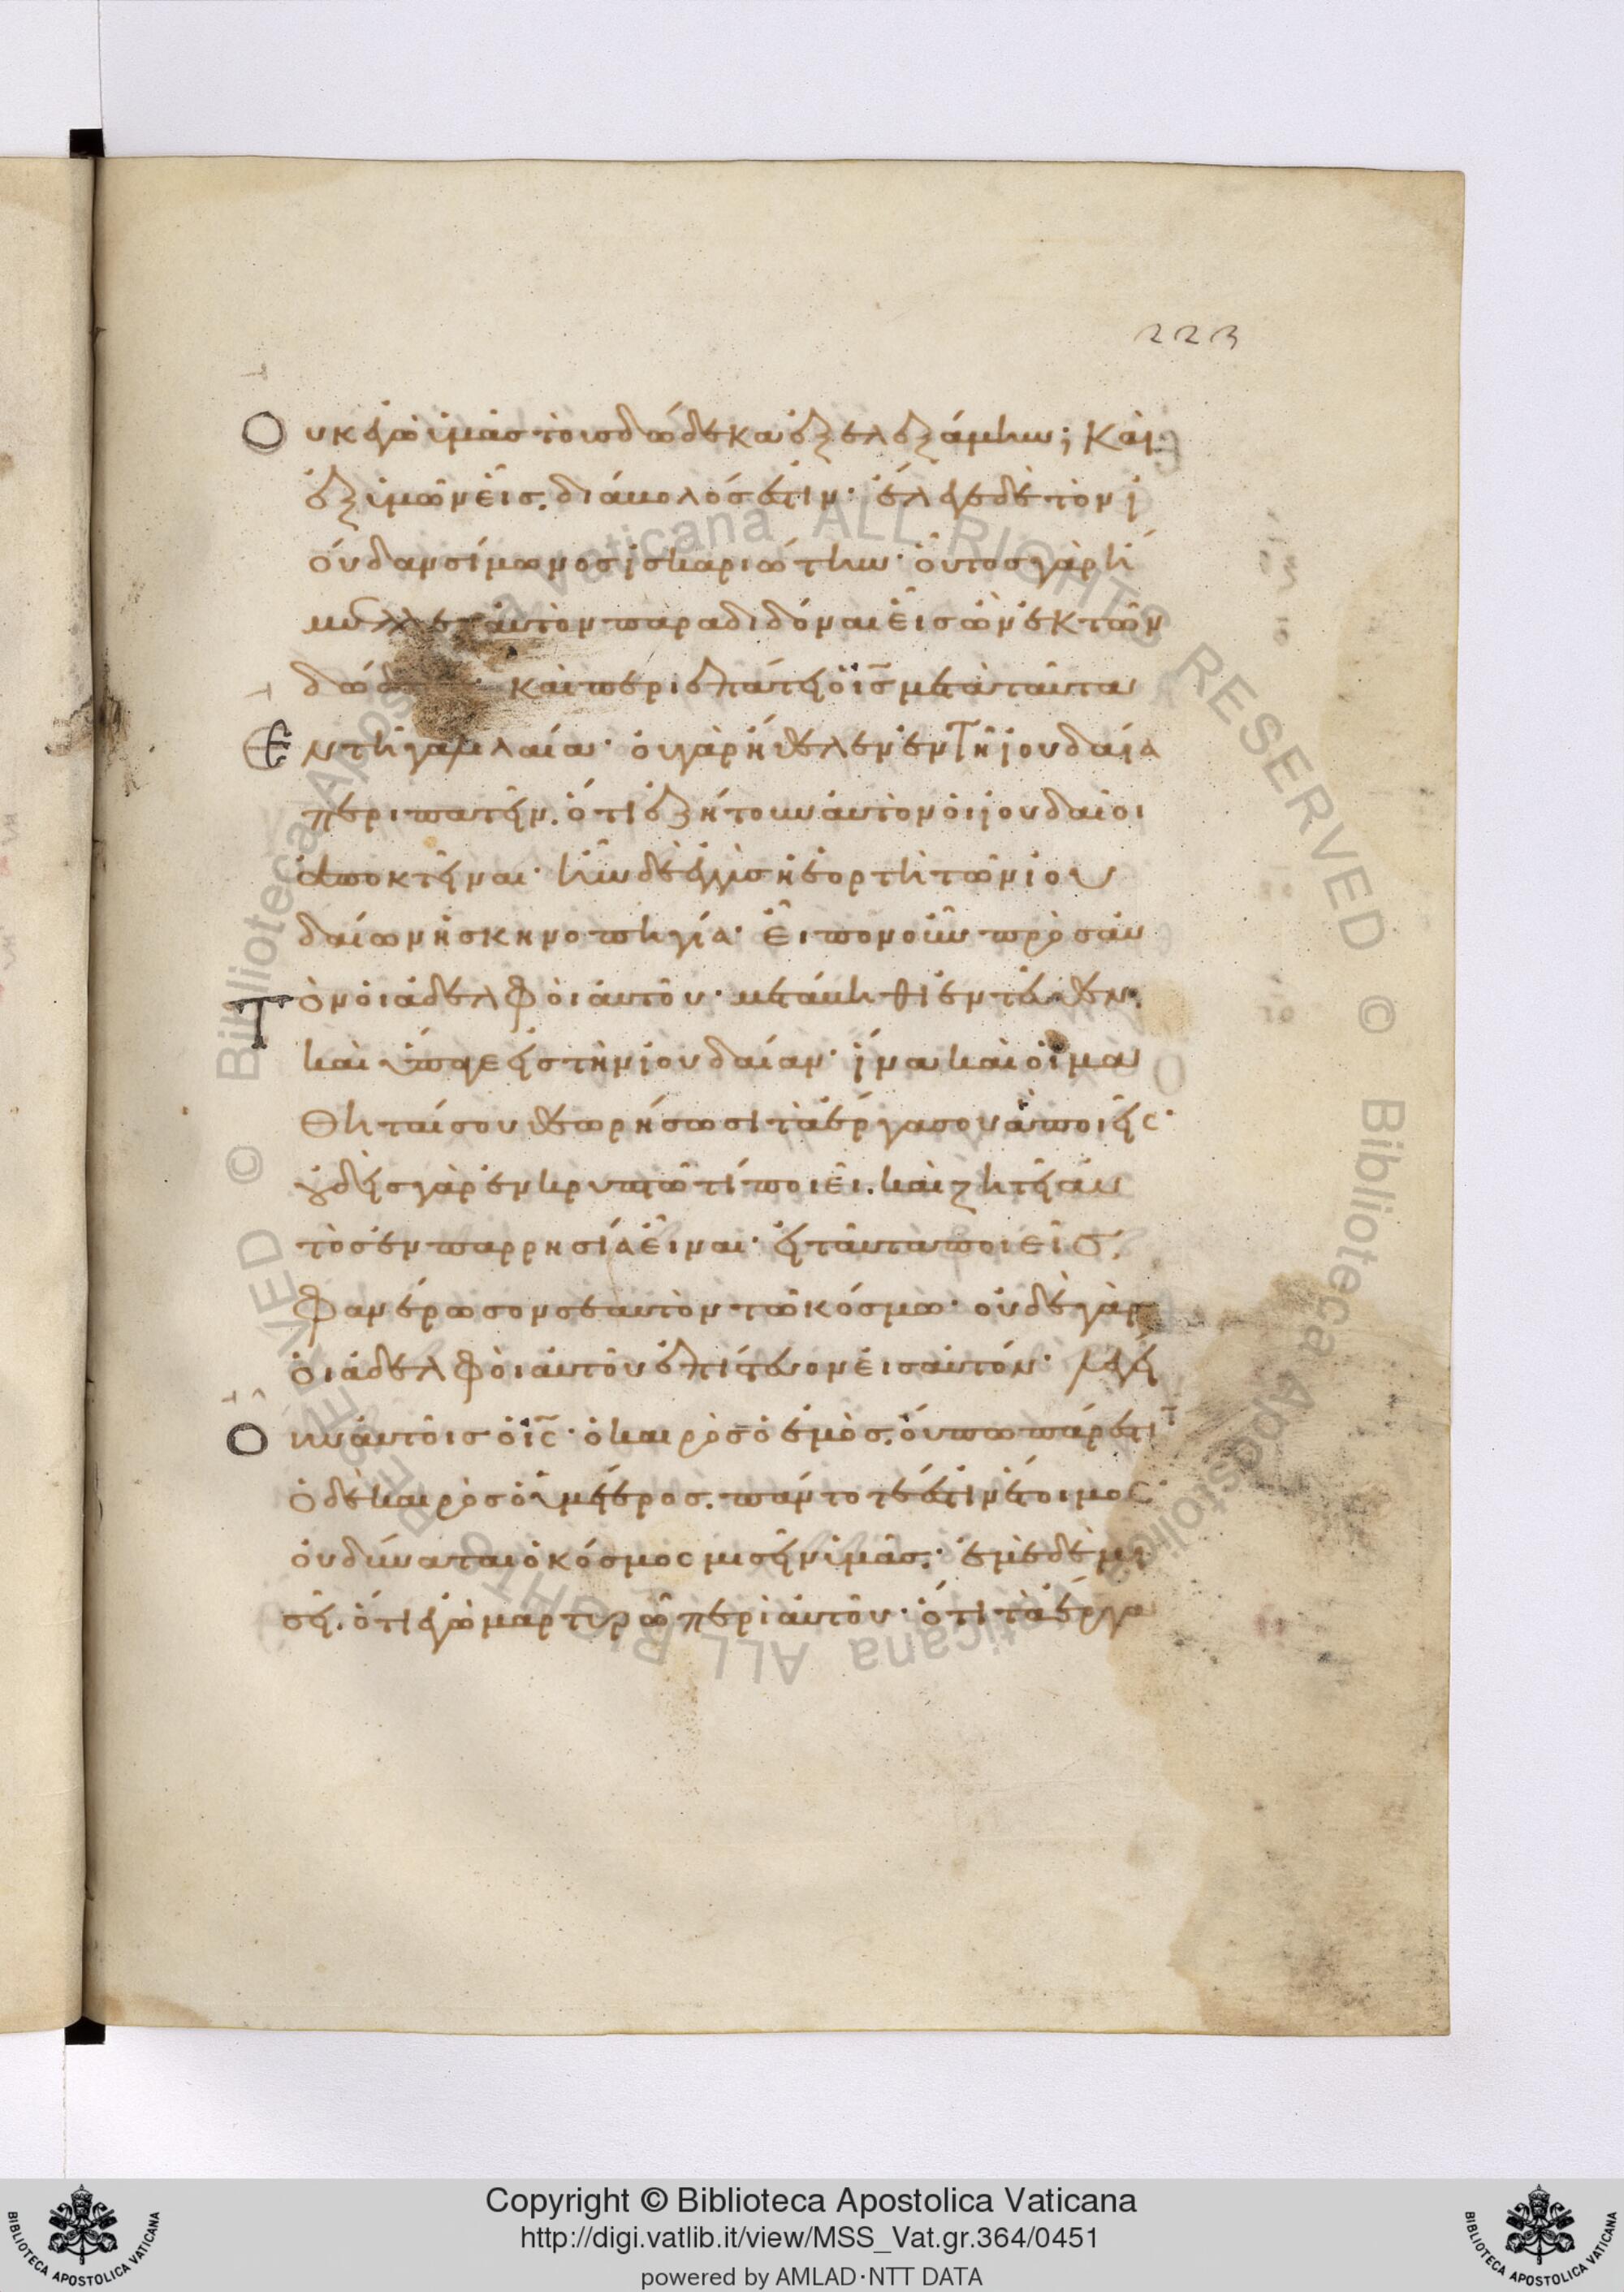 223
Οὐκ ἐγὼ ὑμᾶς τοὺς δώδεκα ἐξελεξάμην; Καὶ
ἐξ ὑμῶν εἷς, διάβολός ἐστιν· ἔλεγε δὲ τὸν ἰ
ούδαν σίμωνος ἰσκαριώτην· οὗτος γὰρ ἤ
μελλεν αὐτὸν παραδιδόναι εἷς ὢν ἐκ τῶν
δώδ καὶ περιεπάτει ὁ ι̅ς̅ μετὰ ταῦτα
Ἐν τῆ γαλιλαία· οὐ γὰρ ἤθελεν ἐν τῆ ἰουδαία
περιπατεῖν, ὅτι ἐζήτουν αὐτὸν οἱ ἰουδαῖοι
ἀποκτεῖναι· ἦν δὲ ἐγγὺς ἡ ἑορτὴ τῶν ἰου
δαίων ἡ σκηνοπηγία· εἶπον οὖν πρὸς αὐ
Τὸν οἱ ἀδελφοὶ αὐτοῦ· μετάβηθι ἐντεῦθεν,
καὶ ὕπαγε εἰς τὴν ἰουδαίαν· ἵνα καὶ οἱ μα
θηταί σου θεωρήσωσι τὰ ἔργα σου ἃ ποιεῖς·
οὐδεὶς γὰρ ἐν κρυπτῶ τί ποιεῖ, καὶ ζητεῖ αὐ
τὸς ἐν παρρησία εἶναι· εἰ ταῦτα ποιεῖς,
φανέρωσον σεαυτὸν τῶ κόσμω· οὐδὲ γὰρ
οἱ ἀδελφοὶ αὐτοῦ ἐπίστευον εἰς αὐτόν· λέγει
Οὖν αὐτοῖς ὁ ι̅ς̅· ὁ καιρὸς ὁ ἐμὸς, οὔπω πάρεστι
ὁ δὲ καιρὸς ὁ ὑμέτερος, πάντοτέ ἐστιν ἕτοιμος·
οὐ δύναται ὁ κόσμος μισεῖν ὑμᾶς· ἐμὲ δὲ μι
σεῖ, ὅτι ἐγὼ μαρτυρῶ περὶ αὐτοῦ· ὅτι τὰ ἔργα
Biblioteca Apostolica Vaticana ALL RIGHTS RESERVED © Biblioteca Apostolica Vaticana ALL RIGHTS RESERVED ©
BIBLIOTECA APOSTOLICA VATICANA
Copyright © Biblioteca Apostolica Vaticana
http://digi.vatlib.it/view/MSS_Vat.gr.364/0451
powered by AMLAD·NTT DATA
BIBLIOTECA APOSTOLICA VATICANA